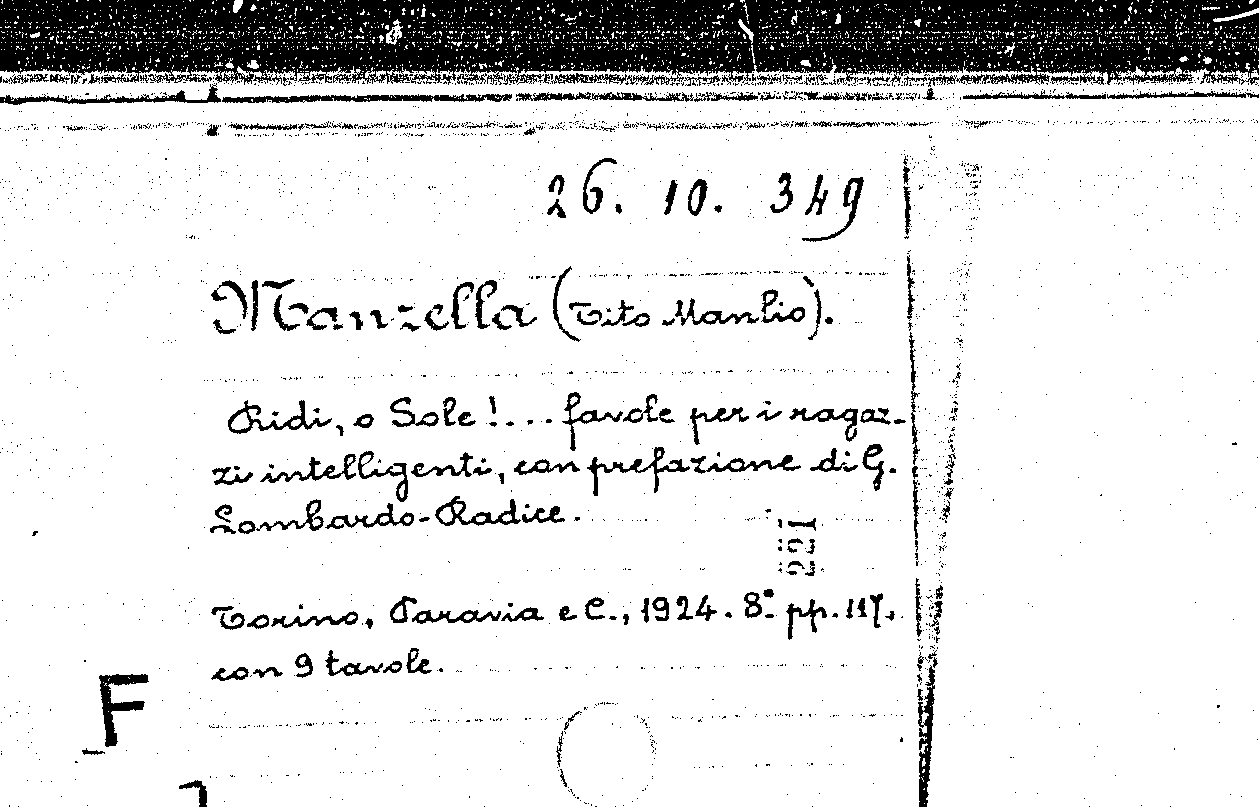 26. 10. 349
Manzella (Tito Manlio).
Ridi, o Sole!... favole per i ragaz-
zi intelligenti, con prefazione di G.
Lombardo-Radice.
221
Torino, Paravia e C., 1924. 8.° pp. 117,
con 9 tavole.
F